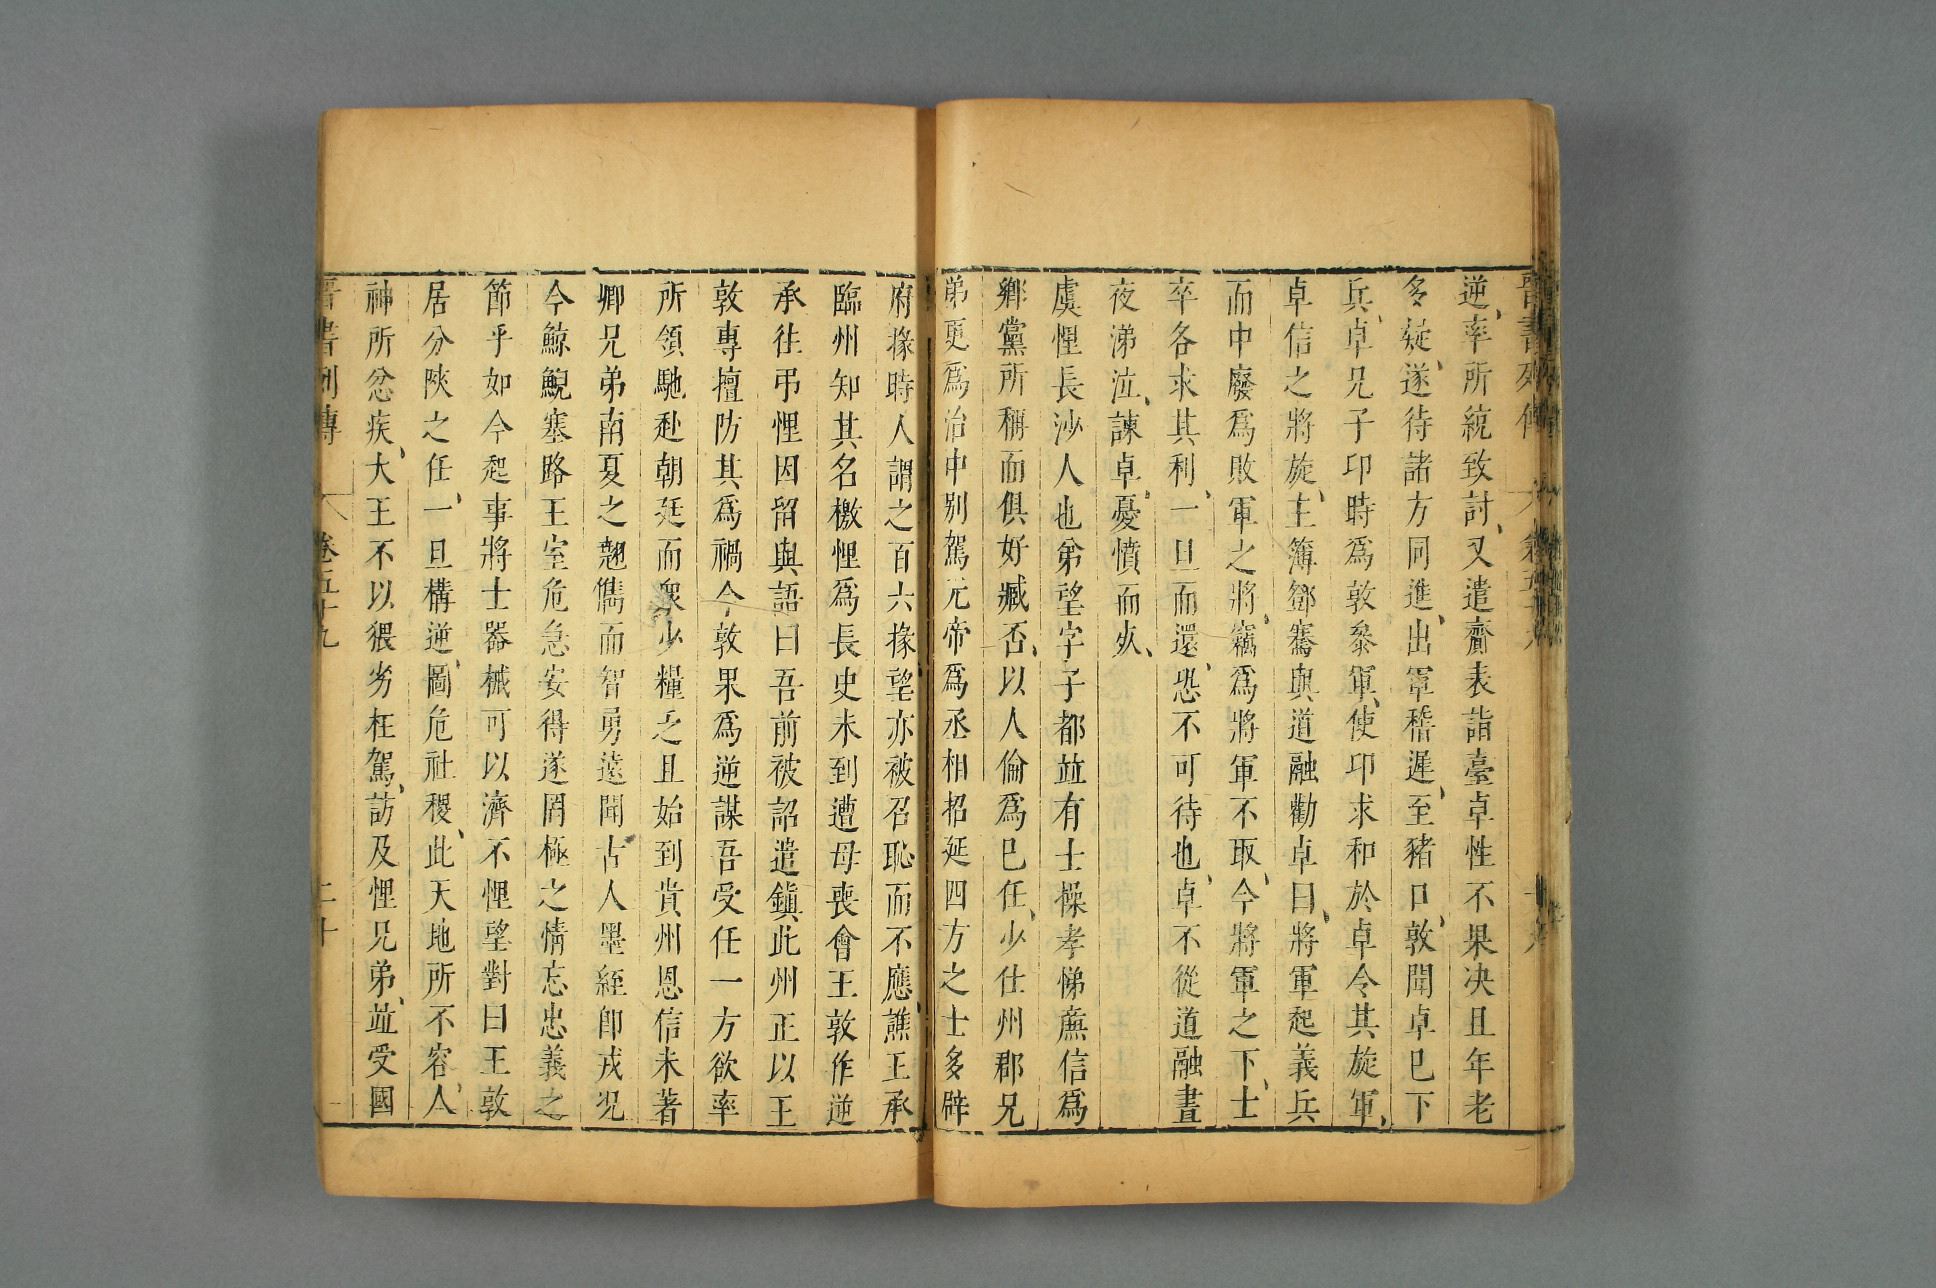 晉書列傳 卷五十九
逆率所統致討又遣齎表詣臺卓性不果決且年老
多疑遂待諸方同進出軍稽遲至豬口敦聞卓已下
兵卓兄子卬時爲敦參軍使卬求和於卓令其旋軍
卓信之將旋主簿鄧騫與道融勸卓曰將軍起義兵
而中廢爲敗軍之將竊爲將軍不取今將軍之下士
卒各求其利一旦而還恐不可待也卓不從道融晝
夜涕泣諫卓憂憤而㱽
虞悝長沙人也弟望字子都並有士操孝悌廉信爲
鄉黨所稱而俱好臧否以人倫爲已任少仕州郡兄
弟更爲治中別駕元帝爲丞相招延四方之士多辟
府掾時人謂之百六掾望亦被召恥而不應譙王承
臨州知其名檄悝爲長史未到遭母喪會王敦作逆
承往弔悝因留與語曰吾前被詔遣鎮此州正以王
敦專擅防其爲禍今敦果爲逆謀吾受任一方欲率
所領馳赴朝廷而衆少糧乏且始到貴州恩信未著
卿兄弟南夏之翹儁而智勇遠聞古人墨絰卽戎況
今鯨鯢塞路王室危急安得遂罔極之情忘忠義之
節乎如今起事將士器械可以濟不悝望對曰王敦
居分陝之任一旦構逆圖危社稷此天地所不容人
神所忿疾大王不以猥劣枉駕訪及悝兄弟並受國
晉書列傳 卷五十九 二十